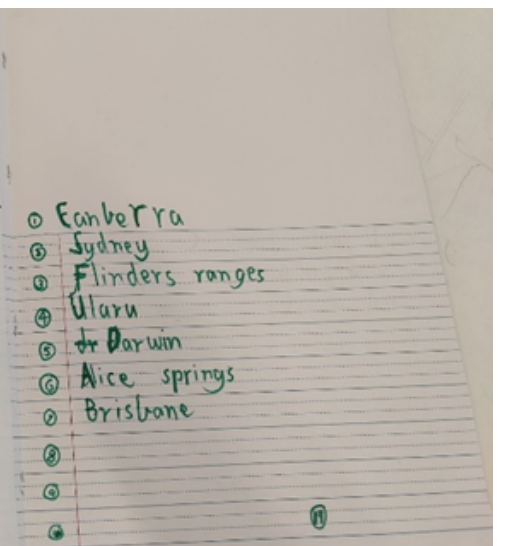 ① Eanberra
② Sydney
③ Flinders ranges
④ Ularu
⑤ Darwin
⑥ Alice springs
⑦ Brisbane
⑧
⑨
⑩
⑪